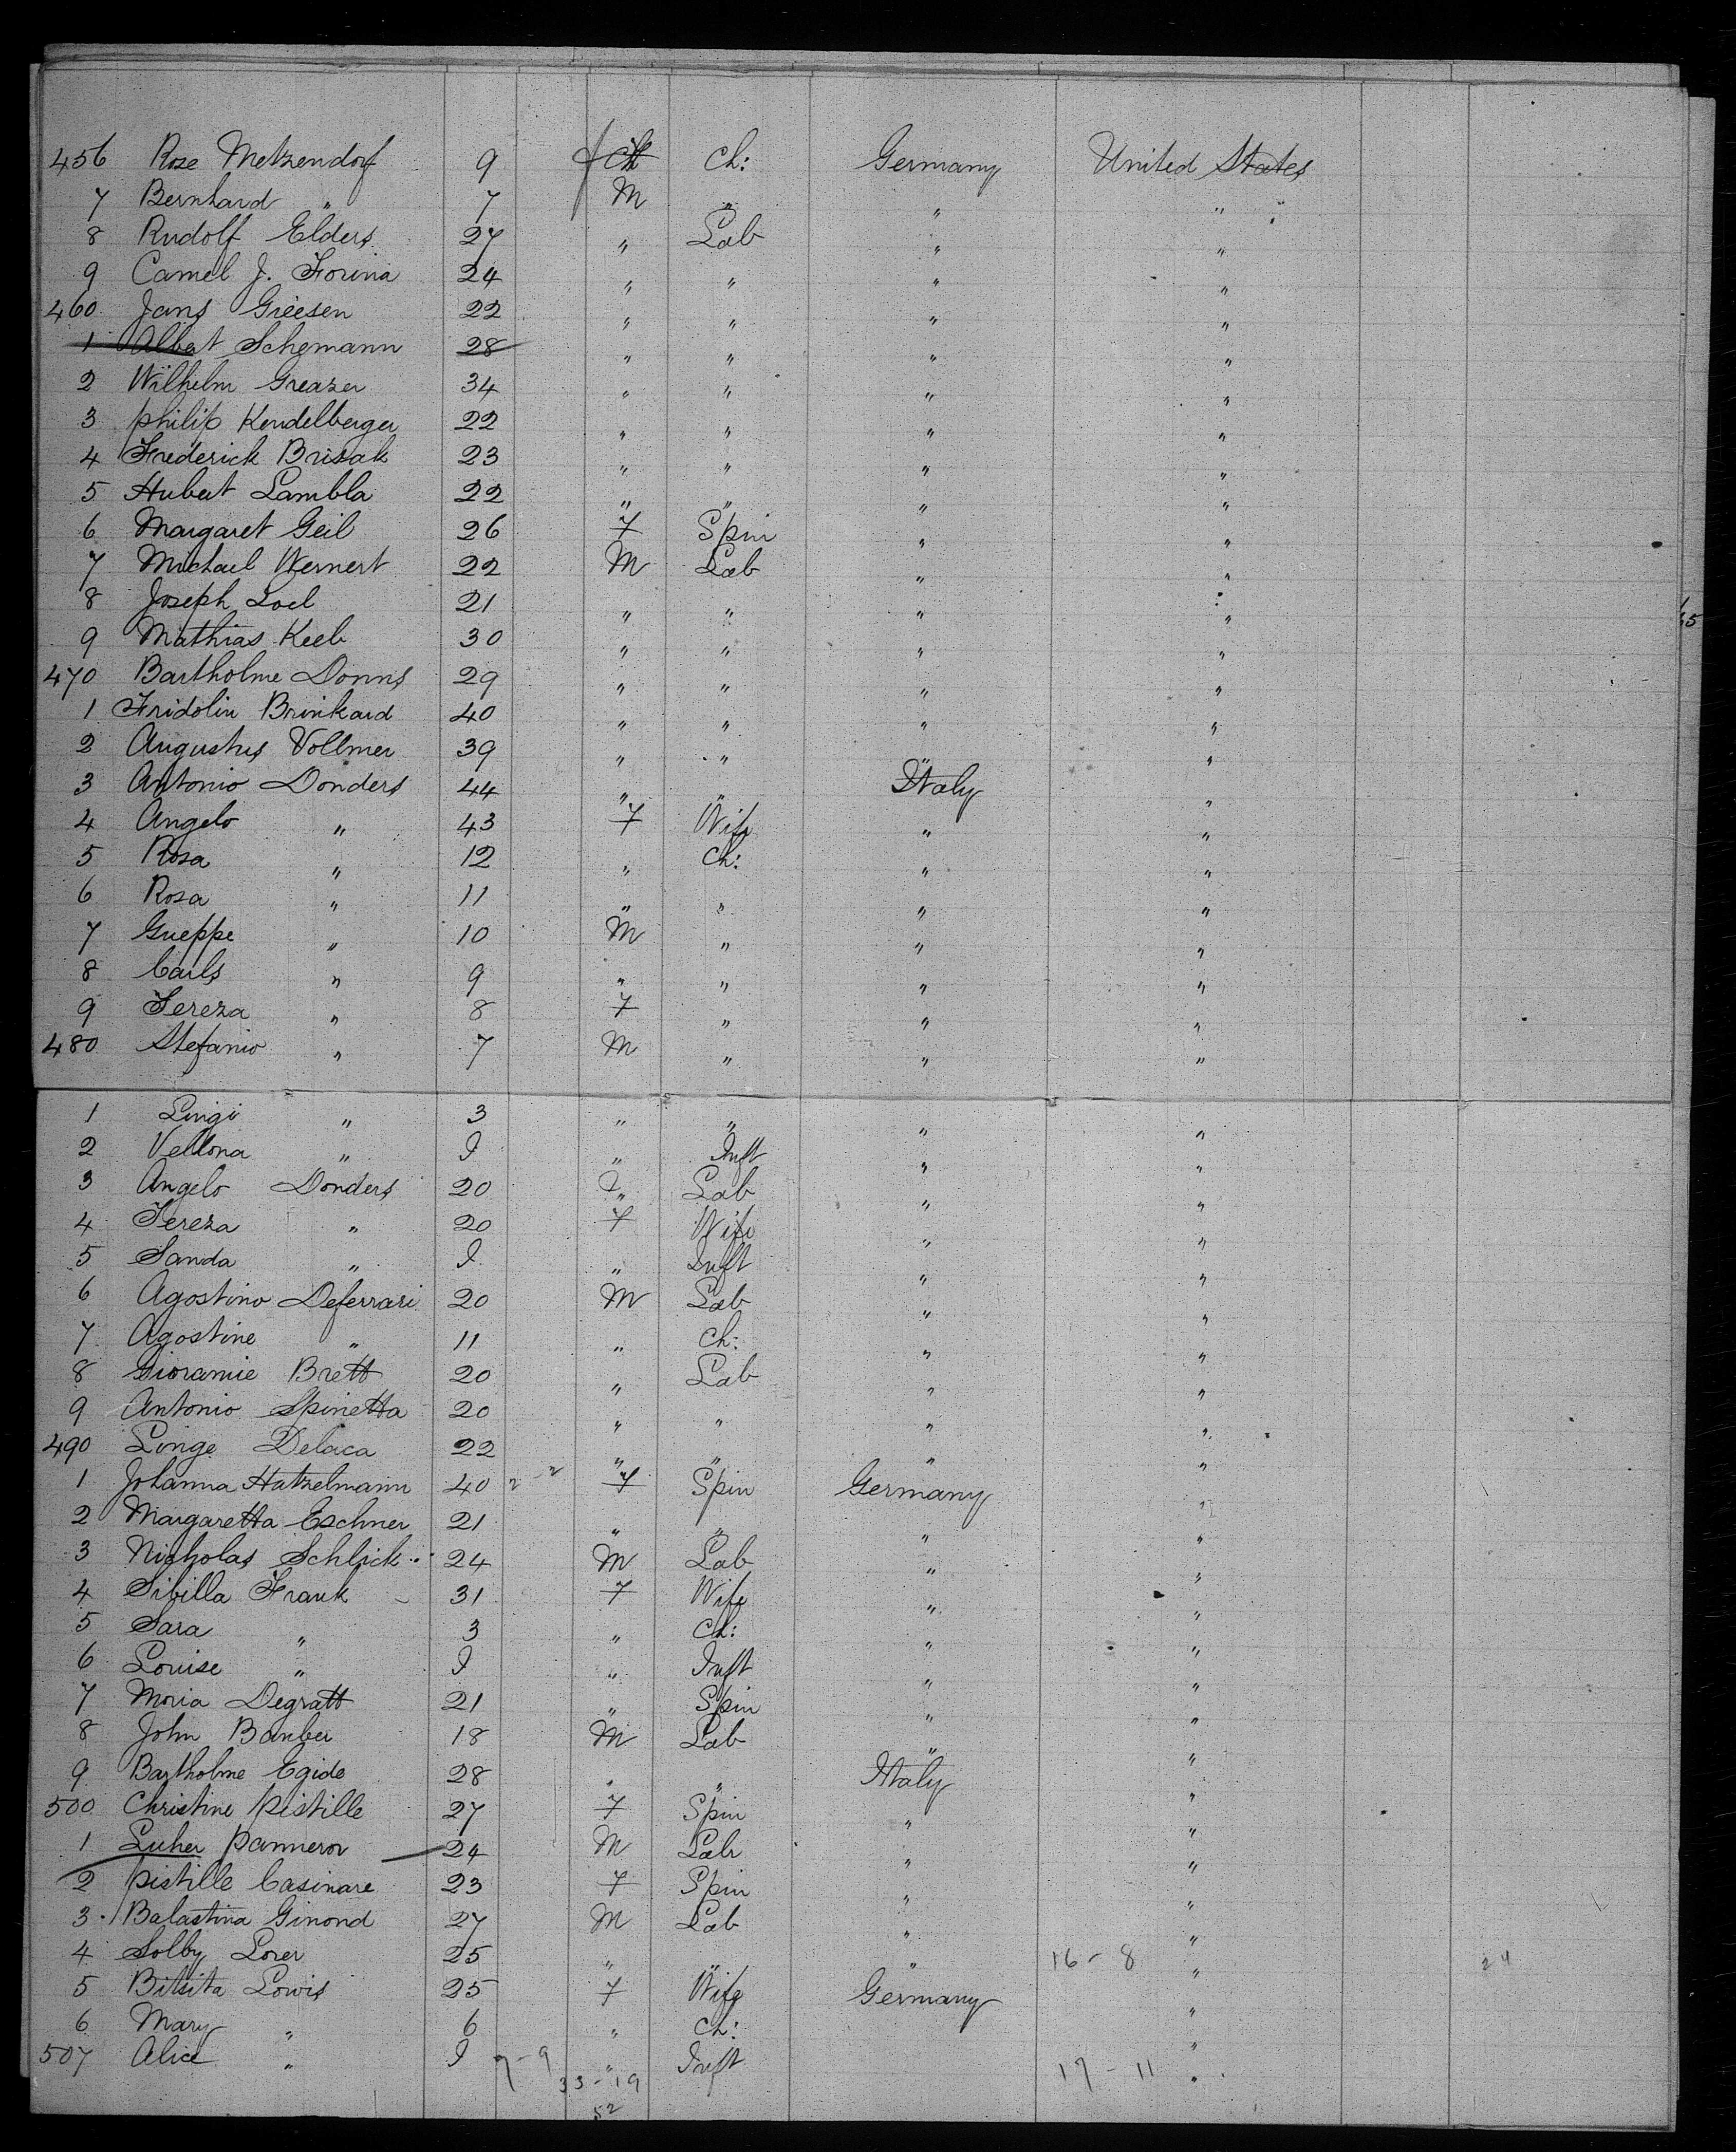 456 Rose Metzendorf 9 f Ch: Germany United States
7 Bernhard " 7 M " " "
8 Rudolf Elders 27 " Lab " "
9 Camel J. Forina 24 " " " "
460 Jans Grieesen 22 " " " "
1 Albert Schemann 28 " " " "
2 Wilhelm Greazer 34 " " " "
3 philip Kendelberger 22 " " " "
4 Frederick Brisak 23 " " " "
5 Hubert Lambla 22 " " " "
6 Margaret Geil 26 F Spin " "
7 Michael Wernert 22 M Lab " "
8 Joseph Loel 21 " " " "
9 Mathias Keeb 30 " " " "
470 Bartholme Donns 29 " " " "
1 Fridolin Brinkard 40 " " " "
2 Augustus Vollmer 39 " " " "
3 Antonio Donders 44 " " Italy "
4 Angelo " 43 F Wife " "
5 Rosa " 12 " Ch: " "
6 Rosa " 11 " " " "
7 Gueppe " 10 M " " "
8 Carls " 9 " " " "
9 Tereza " 8 F " " "
480 Stefanio " 7 M " " "
1 Lingi " 3 " " " "
2 Vellona " I " Inft " "
3 Angelo Donders 20 " Lab " "
4 Tereza " 20 F Wife " "
5 Sanda " I " Inft " "
6 Agostino Deferrari 20 M Lab " "
7 Agostine " 11 " Ch: " "
8 Gioramie Brett 20 " Lab " "
9 Antonio Spinetta 20 " " " "
490 Linge Delaca 22 " " " "
1 Johanna Hatzelmann 40 2 - 2 F Spin Germany "
2 Margaretta Eschner 21 " " " "
3 Nicholas Schlick 24 M Lab " "
4 Sibilla Frank 31 F Wife " "
5 Sara " 3 " Ch: " "
6 Louise " I " Inft " "
7 Moria Degratt 21 " Spin " "
8 John Bamber 18 M Lab " "
9 Bartholme Egide 28 " " Italy "
500 Christine pistille 27 F Spin " "
1 Luher panneror 24 M Lab " "
2 pistille Casinare 23 F Spin " "
3 Balastina Ginond 27 M Lab " "
4 Solby Lorer 25 " " " 16 - 8 " 24
5 Bitsita Lowis 25 F Wife Germany "
6 Mary " 6 " Ch: "
507 Alice " I 7 - 9 " Inft 17 - 11 "
33 - 19
52